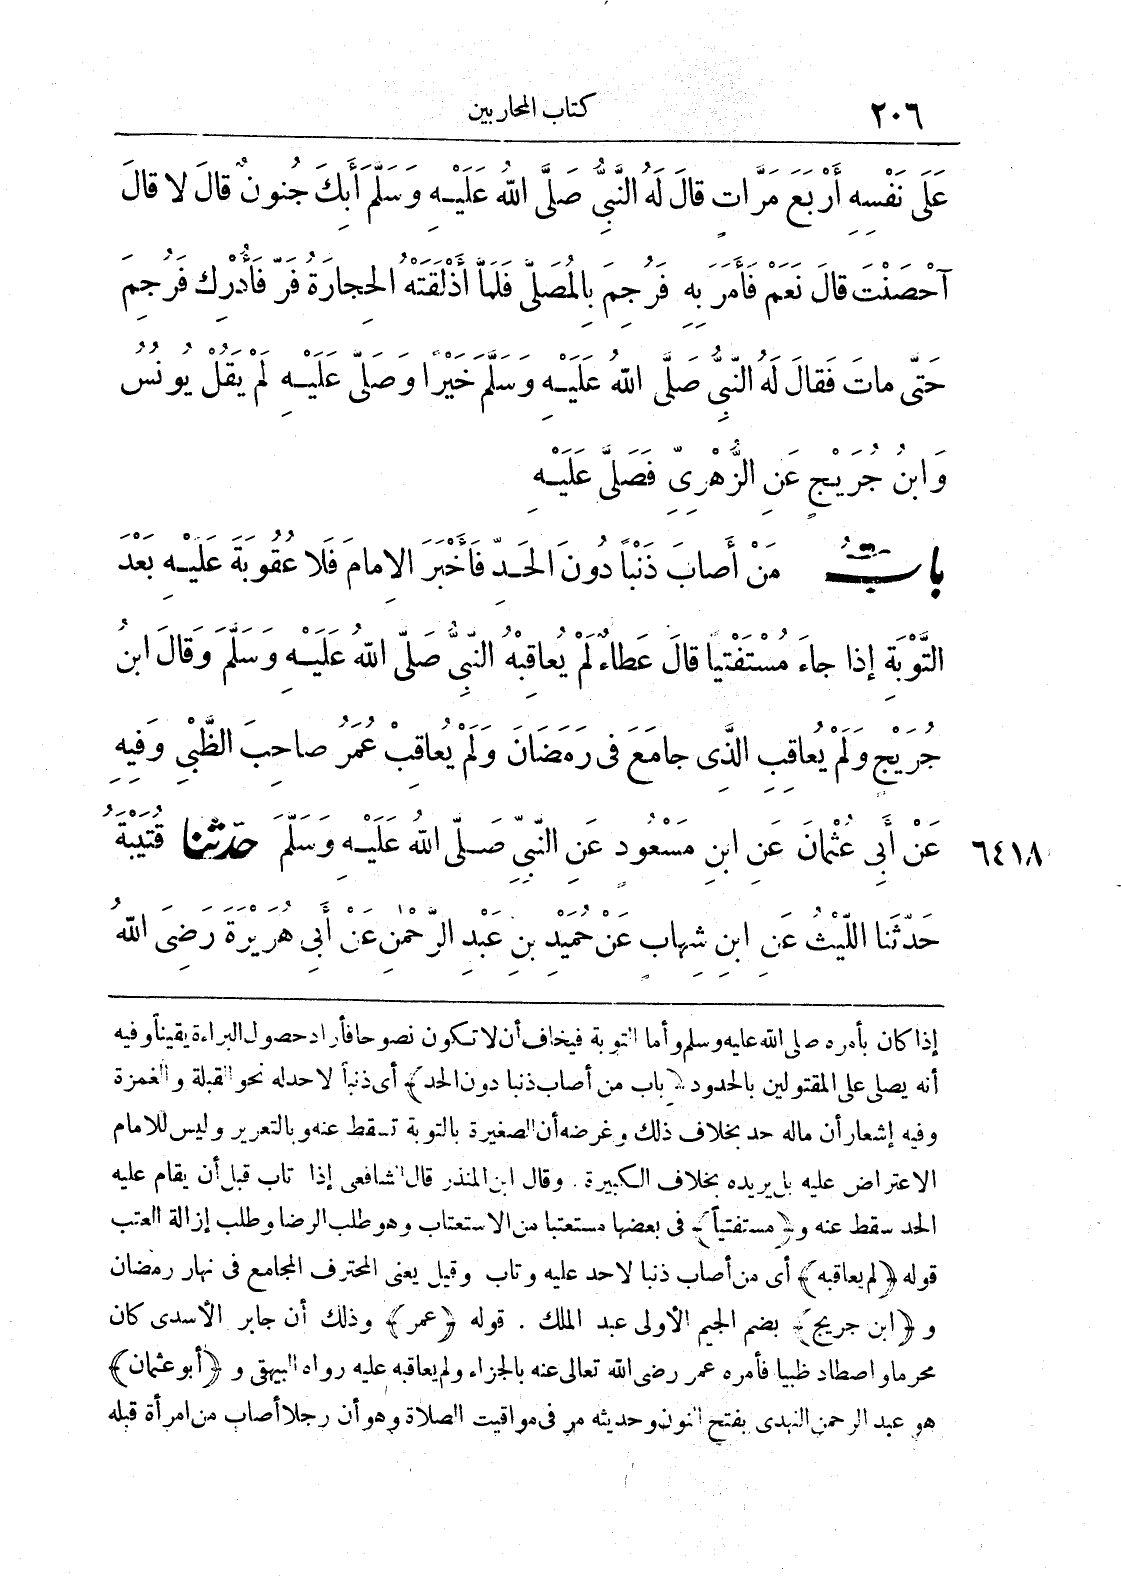 ٢٠٦ كتاب المحاربين
عَلَى نَفْسِهِ أَرْبَعَ مَرَّاتٍ قالَ لَهُ النَّبِيُّ صَلَّى اللهُ عَلَيْهِ وَسَلَّمَ أَبِكَ جُنونٌ قالَ لا قالَ
آحْصَنْتَ قالَ نَعَمْ فَأَمَرَ بِهِ فَرُجِمَ بِالْمُصَلَّى فَلَمَّا أَذْلَقَتْهُ الحِجارَةُ فَرَّ فَأُدْرِكَ فَرُجِمَ
حَتَّى ماتَ فَقالَ لَهُ النَّبِيُّ صَلَّى اللهُ عَلَيْهِ وَسَلَّمَ خَيْرًا وَصَلَّى عَلَيْهِ لَمْ يَقُلْ يُونُسُ
وَابنُ جُرَيْجٍ عَنِ الزُّهْرِىِّ فَصَلَّى عَلَيْهِ
بابُ مَنْ أَصابَ ذَنْباً دُونَ الحَدِّ فَأَخْبَرَ الإِمامَ فَلا عُقُوبَةَ عَلَيْهِ بَعْدَ
التَّوْبَةِ إِذا جاءَ مُسْتَفْتِياً قالَ عَطاءٌ لَمْ يُعاقِبْهُ النَّبِيُّ صَلَّى اللهُ عَلَيْهِ وَسَلَّمَ وَقالَ ابنُ
جُرَيْجٍ وَلَمْ يُعاقِبِ الَّذِى جامَعَ فى رَمَضانَ وَلَمْ يُعاقِبْ عُمَرُ صاحِبَ الظَّبْىِ وَفِيهِ
٦٤١٨ عَنْ أَبِى عُثْمانَ عَنِ ابنِ مَسْعُودٍ عَنِ النَّبِيِّ صَلَّى اللهُ عَلَيْهِ وَسَلَّمَ حدّثنا قُتَيْبَةُ
حَدَّثَنا اللَّيْثُ عَنِ ابنِ شِهابٍ عَنْ حُمَيْدِ بنِ عَبْدِ الرَّحْمٰنِ عَنْ أَبِى هُرَيْرَةَ رَضِىَ اللهُ
إذا كان بأمره صلى الله عليه وسلم وأما التوبة فيخاف أن لا تكون نصوحا فأراد حصول البراءة يقيناً وفيه
أنه يصلى على المقتولين بالحدود ﴿باب من أصاب ذنبا دون الحد﴾ أى ذنباً لا حد له نحو القبلة والغمزة
وفيه إشعار أن ماله حد بخلاف ذلك وغرضه أن الصغيرة بالتوبة تسقط عنه وبالتعزير وليس للامام
الاعتراض عليه بل يريده بخلاف الكبيرة . وقال ابن المنذر قال الشافعى إذا تاب قبل أن يقام عليه
الحد سقط عنه و﴿مستفتياً﴾ فى بعضها مستعتبا من الاستعتاب وهو طلب الرضا وطلب إزالة العتب
قوله ﴿لم يعاقبه﴾ أى من أصاب ذنبا لا حد عليه وتاب وقيل يعنى المحترف المجامع فى نهار رمضان
و﴿ابن جريج﴾ بضم الجيم الأولى عبد الملك . قوله ﴿عمر﴾ وذلك أن جابر الأسدى كان
محرما واصطاد ظبيا فأمره عمر رضى الله تعالى عنه بالجزاء ولم يعاقبه عليه رواه البيهقى و﴿أبو عثمان﴾
هو عبد الرحمن النهدى بفتح النون وحديثه مر فى مواقيت الصلاة وهو أن رجلا أصاب من امرأة قبله